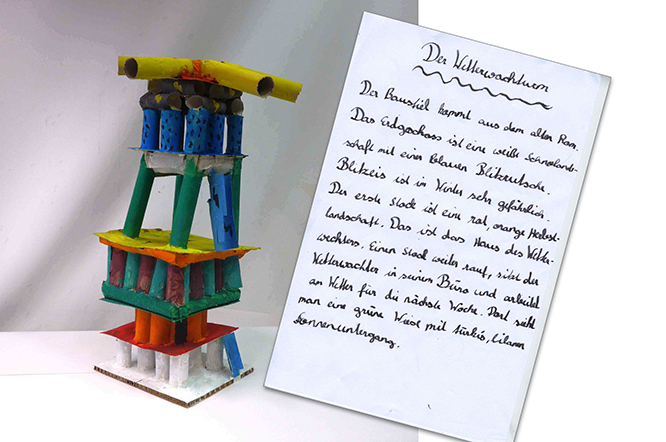 Der Wetterwachturm
Der Baustiel kommt aus dem alten Rom.
Das Erdgeschoss ist eine weiße Schneeland-
schaft mit einer blauen Blitzrutsche.
Blitzeis ist in Winter sehr gefährlich.
Der erste Stock ist eine rot, orange Herbst-
landschaft. Das ist das Haus des Wetter-
wechters. Einen Stock weiter rauf, sitzt der
Wetterwächter in seinem Büro und arbeitet
an Wetter für die nächste Woche. Dort sieht
man eine grüne Wiese mit türkis, lilanen
Sonnenuntergang.